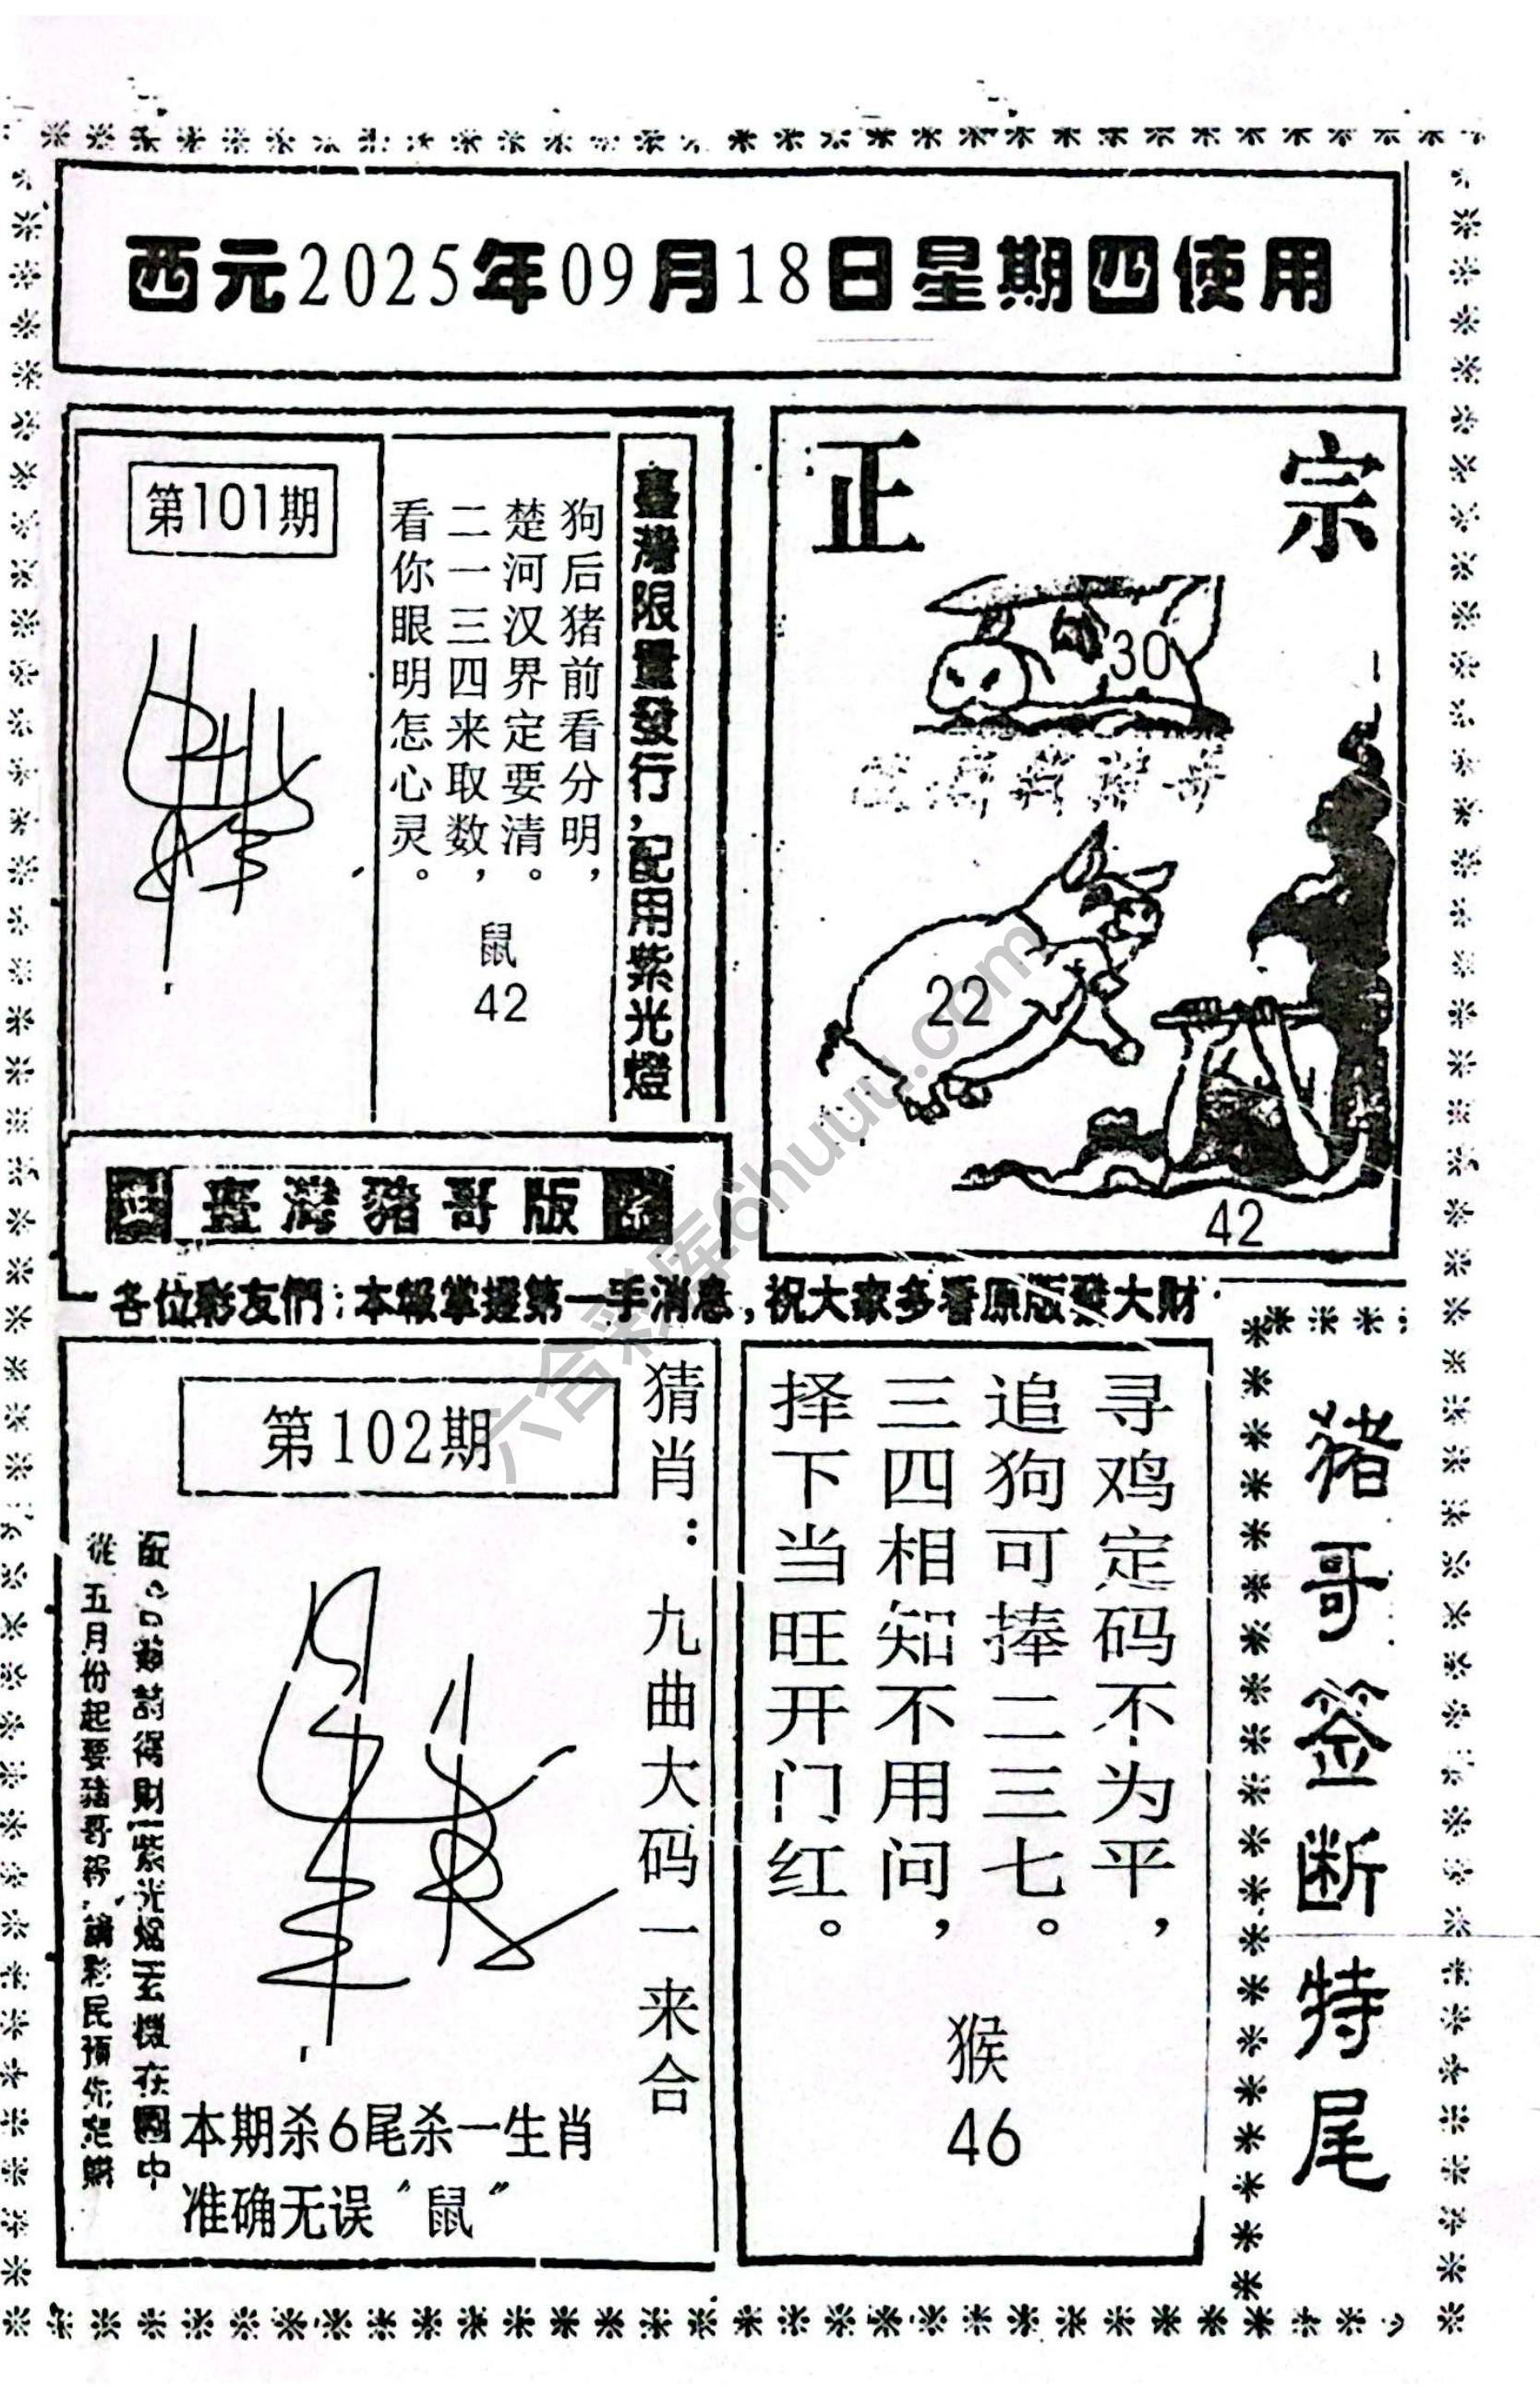 西元2025年09月18日星期四使用
第101期
臺灣限量發行,配用紫光燈
狗后猪前看分明，
楚河汉界定要清。
二一三四来取数，
看你眼明怎心灵。
鼠
42
正宗
30
22
42
臺灣豬哥版
各位彩友們：本報掌握第一手消息，祝大家多看原版發大財
第102期
猜肖：九曲大码一来合
財紫光燈玄機在圖中
從五月份起要豬哥
彩民預
本期杀6尾杀一生肖
准确无误“鼠”
寻鸡定码不为平，
追狗可捧二三七。
三四相知不用问，
择下当旺开门红。
猴
46
猪哥签断特尾
六合彩库6huuu.com